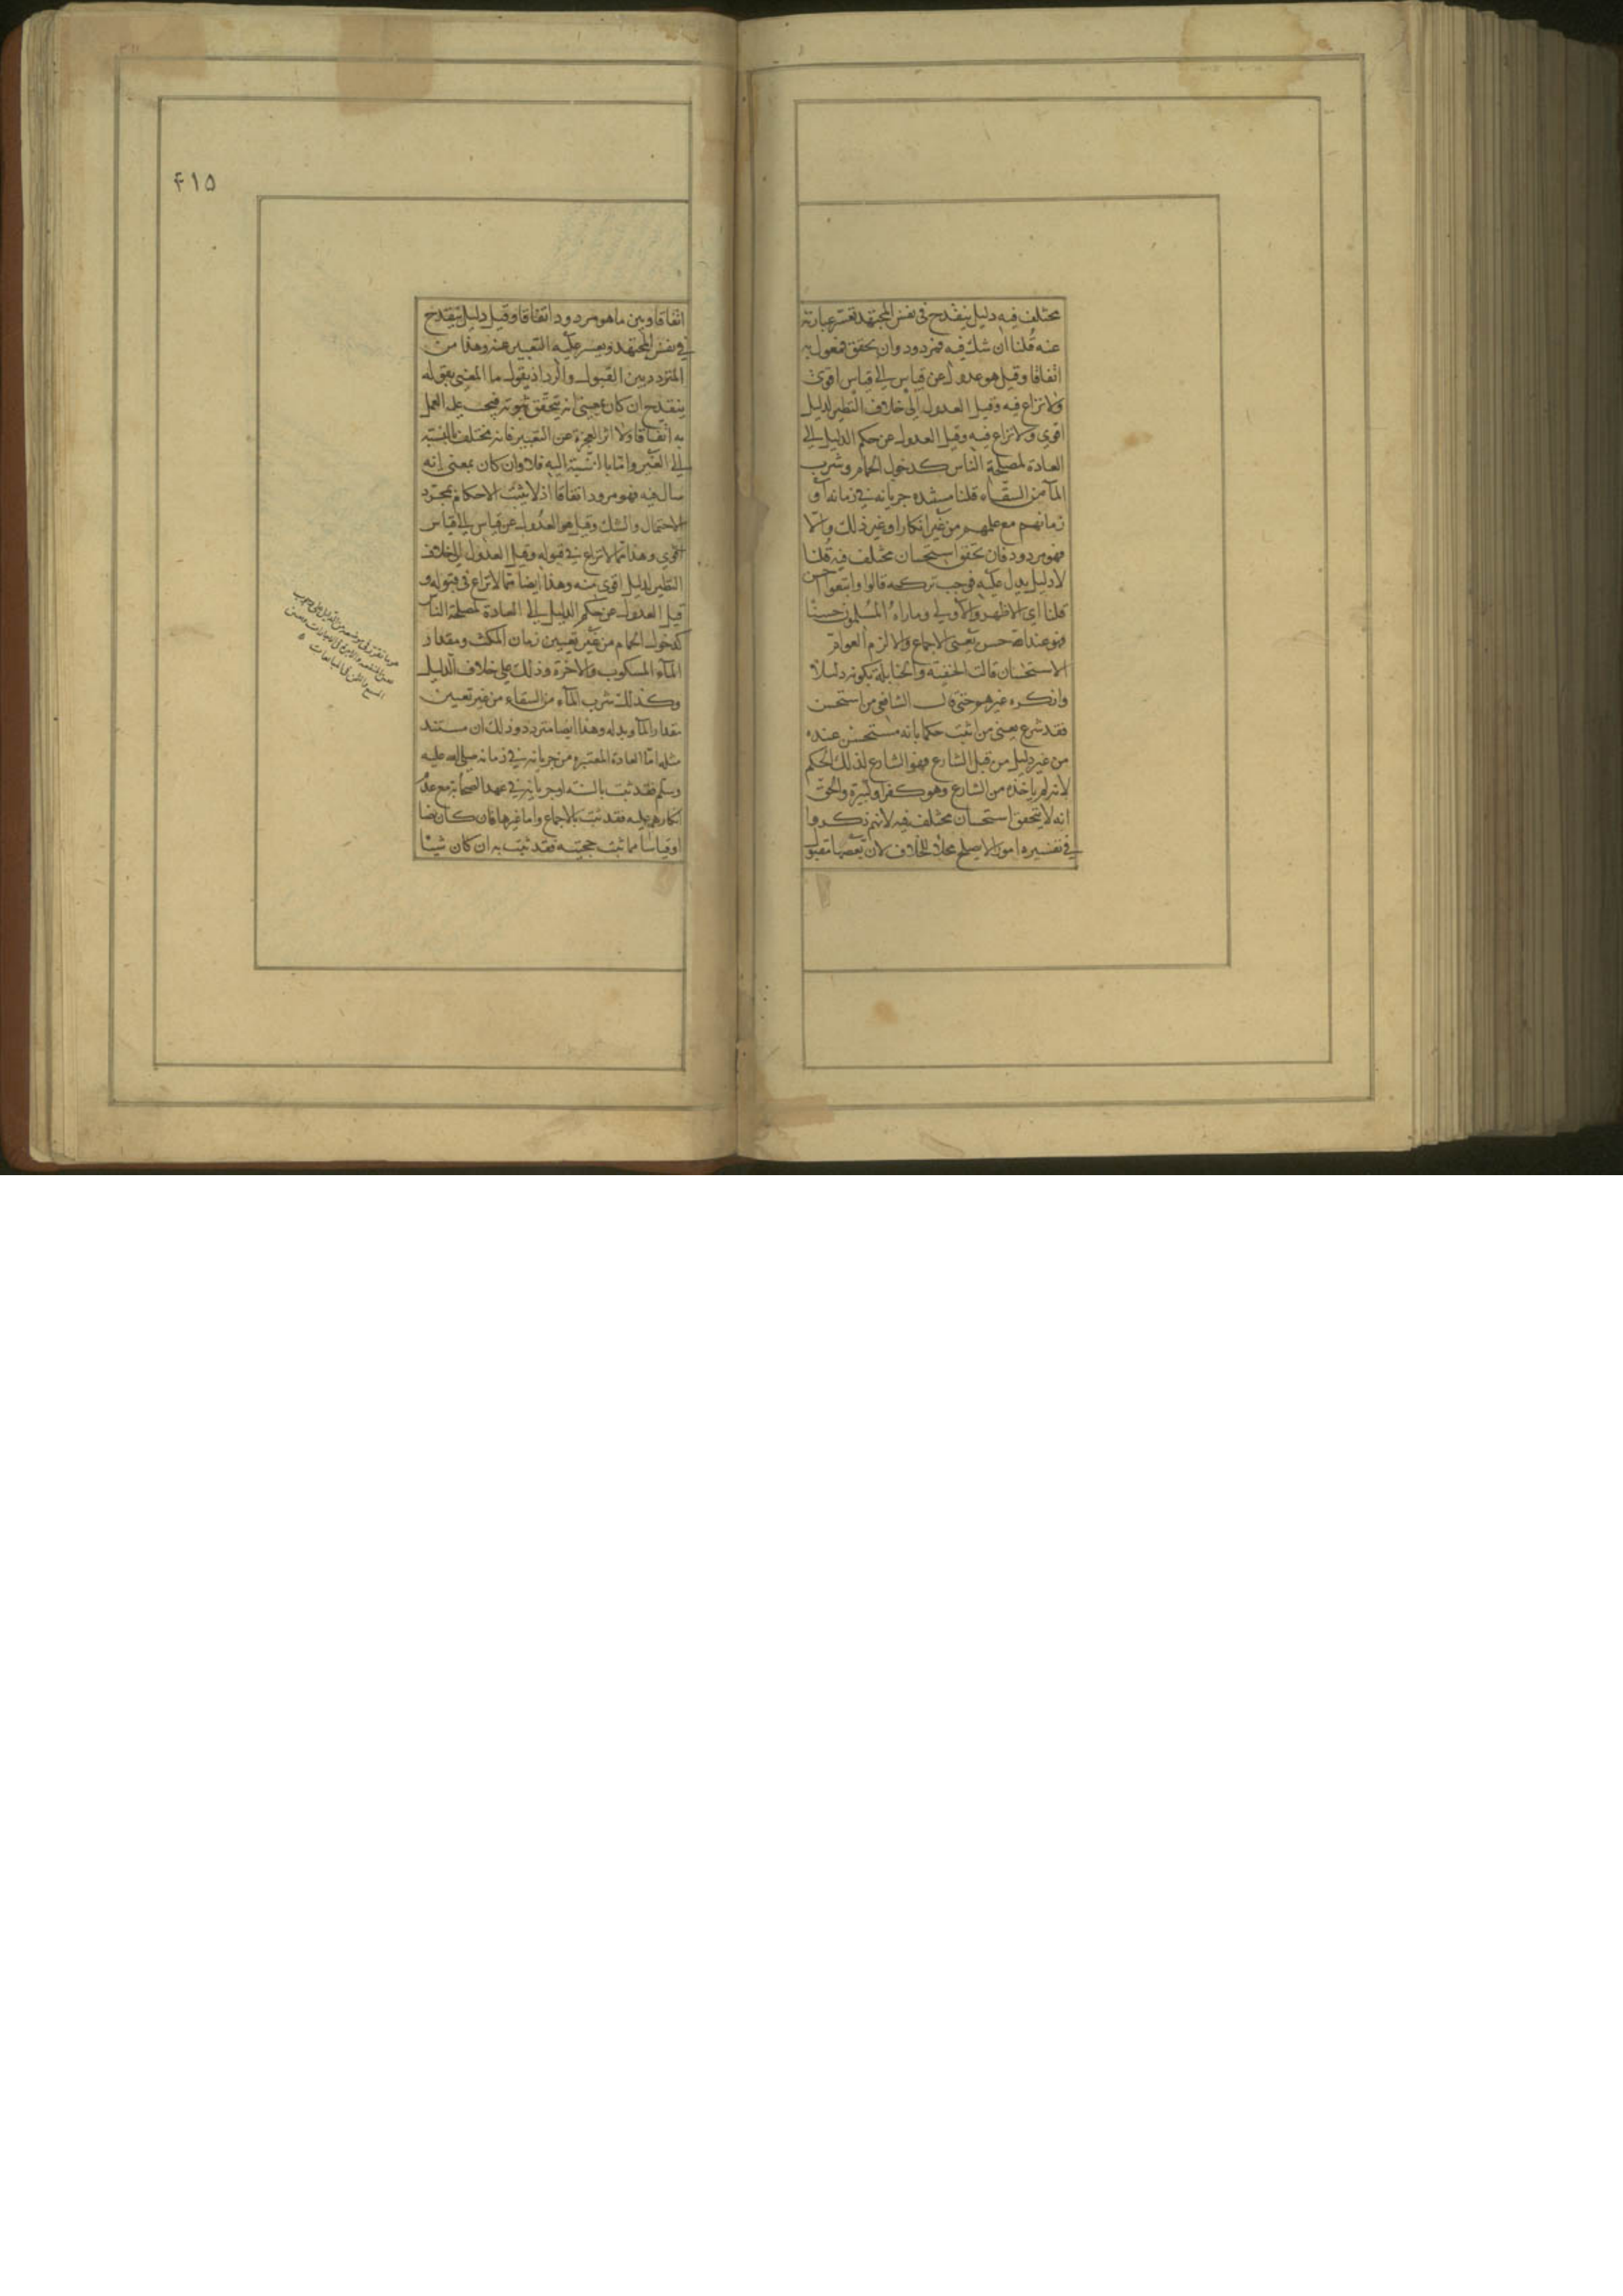 مختلف فيه دليل ينقدح فى نفس المجتهد تعسر عبارته
عنه قلنا ان شك فيه فمردود وان تحقق فمعول به
اتفاقا وقيل هو عدول عن قياس الى قياس اقوى
ولا نزاع فيه وقيل العدول الى خلاف النظير لدليل
اقوى ولا نزاع فيه وقيل العدول عن حكم الدليل الى
العادة لمصلحة الناس كدخول الحمام وشرب
المآ من السقاء قلنا مستنده جريانه فى زمانه او
زمانهم مع علمهم من غير انكار او غير ذلك والا
فهو مردود فان تحقق استحسان مختلف فيه قلنا
لا دليل يدل عليه فوجب تركه قالوا واتبعوا احسن
قلنا اى الاظهر والاولى وما راه المسلمون حسنا
فهو عند الله حسن يعنى الاجماع والا لزم العوام
الاستحسان قالت الحنفية والحنابلة بكونه دليلا
وانكره غيرهم حتى قال الشافعى من استحسن
فقد شرع يعنى من اثبت حكما بانه مستحسن عنده
من غير دليل من قبل الشارع فهو الشارع لذلك الحكم
لانه لم ياخذه من الشارع وهو كفر او كبيرة والحق
انه لا يتحقق استحسان مختلف فيه لانهم ذكروا
فى تفسيره امورا لا يصلح محلا للخلاف لان بعضها مقبو
۴۱۵
اتفاقا وبين ما هو مردود اتفاقا وقيل دليل ينقدح
فى نفس المجتهد ويعسر عليه التعبير عنه وهذا من
المتردد بين القبول والرد اذ يقول ما المعنى بقوله
ينقدح ان كان بمعنى انه تحقق ثبوته فيجب عليه العمل
به اتفاقا ولا اثر لعجزه عن التعبير فانه مختلف بالنسبة
الى الغير واما بالنسبة اليه فلا وان كان بمعنى انه
شاك فيه فهو مردود اتفاقا اذ لا يثبت الاحكام بمجرد
الاحتمال والشك وقيل هو العدول عن قياس الى قياس
اقوى وهذا مما لا نزاع فى قبوله وقيل العدول الى خلاف
النظير لدليل اقوى منه وهذا ايضا مما لا نزاع فى قبوله و
قيل العدول عن حكم الدليل الى العادة لمصلحة الناس
كدخول الحمام من غير تعيين زمان المكث ومقدار
المآء المسكوب والاخرة وذلك على خلاف الدليل
وكذلك شرب المآء من السقاء من غير تعيين
مقدار المآ وبدله وهذا ايضا متردد وذلك ان مستند
مثله اما العادة المعتبره من جريانه فى زمانه صلى الله عليه
وسلم فقد ثبت بالسنه او جريانه فى عهد الصحابة مع عدم
انكارهم عليه فقد ثبت بالاجماع واما غيرها فان كان نصا
او قياسا مما ثبت حجيته فقد ثبت به ان كان شيئا